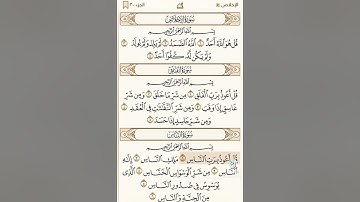 الإخلاص
الجزء ٣٠
سورة الإخلاص
بسم الله الرحمن الرحيم
قُلْ هُوَ ٱللَّهُ أَحَدٌ ١ ٱللَّهُ ٱلصَّمَدُ ٢ لَمْ يَلِدْ وَلَمْ يُولَدْ ٣
وَلَمْ يَكُن لَّهُۥ كُفُوًا أَحَدٌۢ ٤
سورة الفلق
بسم الله الرحمن الرحيم
قُلْ أَعُوذُ بِرَبِّ ٱلْفَلَقِ ١ مِن شَرِّ مَا خَلَقَ ٢ وَمِن شَرِّ
غَاسِقٍ إِذَا وَقَبَ ٣ وَمِن شَرِّ ٱلنَّفَّٰثَٰتِ فِى ٱلْعُقَدِ ٤
وَمِن شَرِّ حَاسِدٍ إِذَا حَسَدَ ٥
سورة الناس
بسم الله الرحمن الرحيم
قُلْ أَعُوذُ بِرَبِّ ٱلنَّاسِ ١ مَلِكِ ٱلنَّاسِ ٢ إِلَٰهِ
ٱلنَّاسِ ٣ مِن شَرِّ ٱلْوَسْوَاسِ ٱلْخَنَّاسِ ٤ ٱلَّذِى
يُوَسْوِسُ فِى صُدُورِ ٱلنَّاسِ ٥
مِنَ ٱلْجِنَّةِ وَٱلنَّاسِ ٦